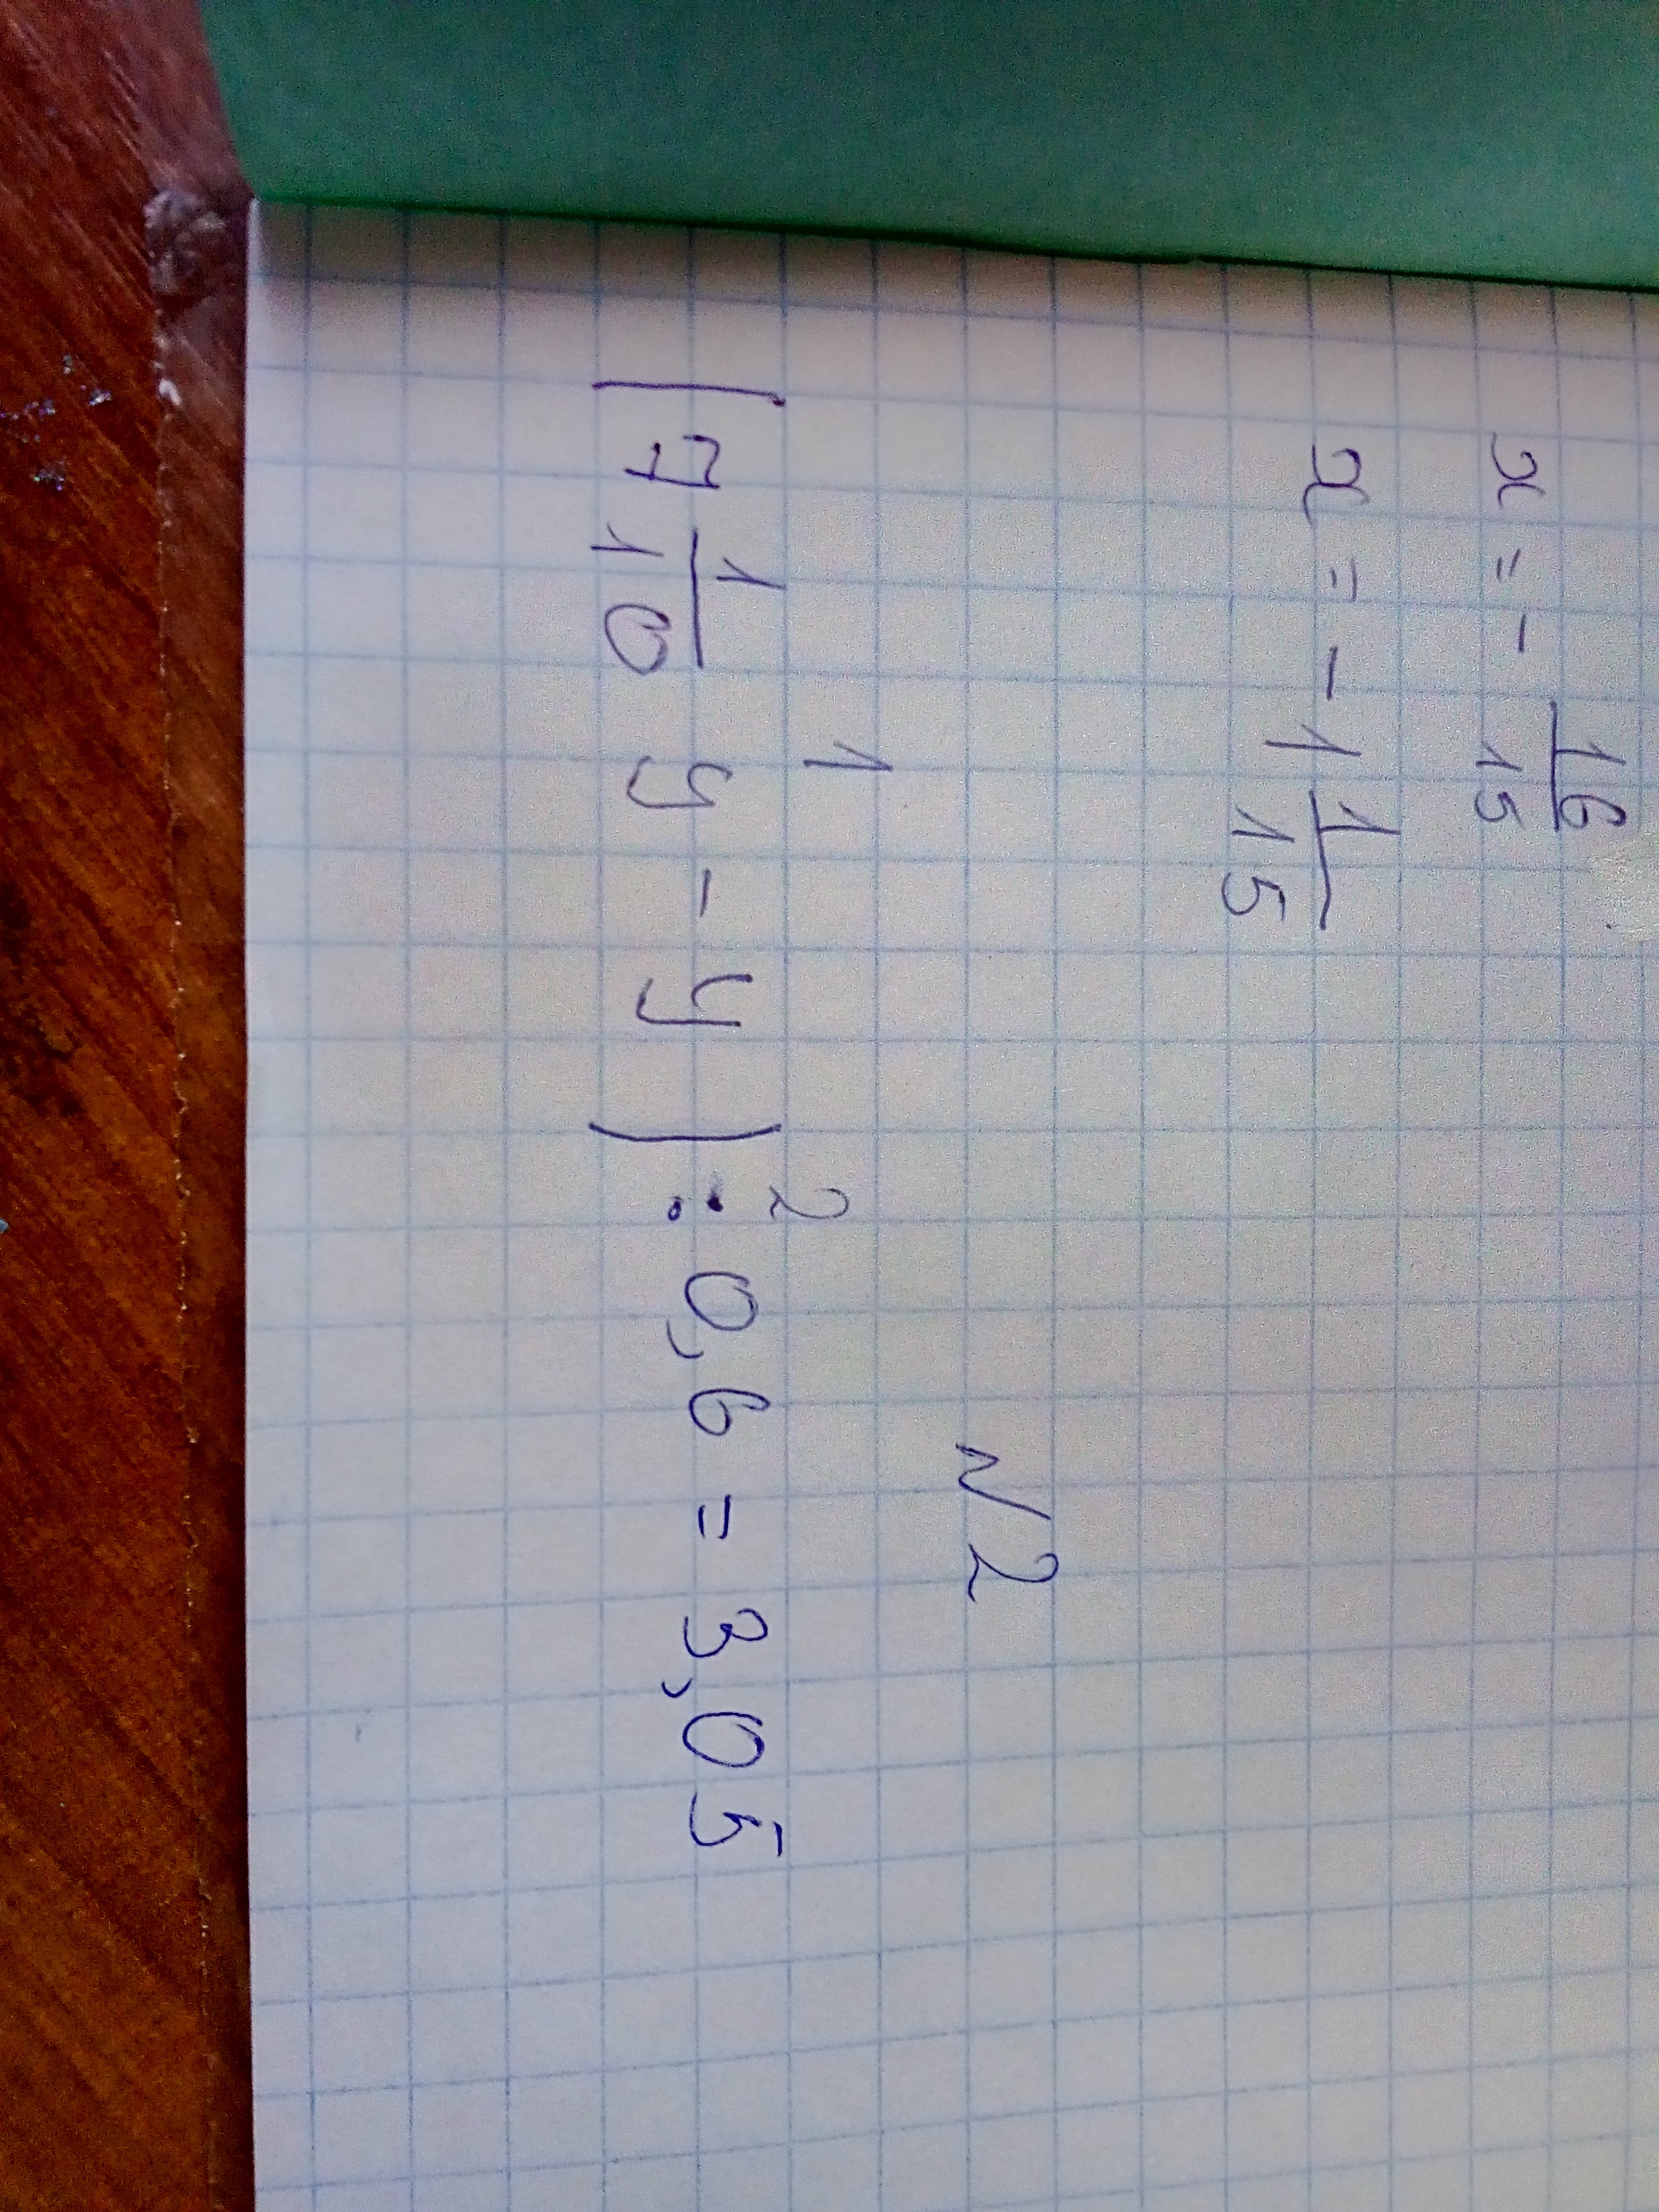 x = - 16/15
x = - 1 1/15
N2
1 2
(7 1/10 y - y) : 0,6 = 3,05